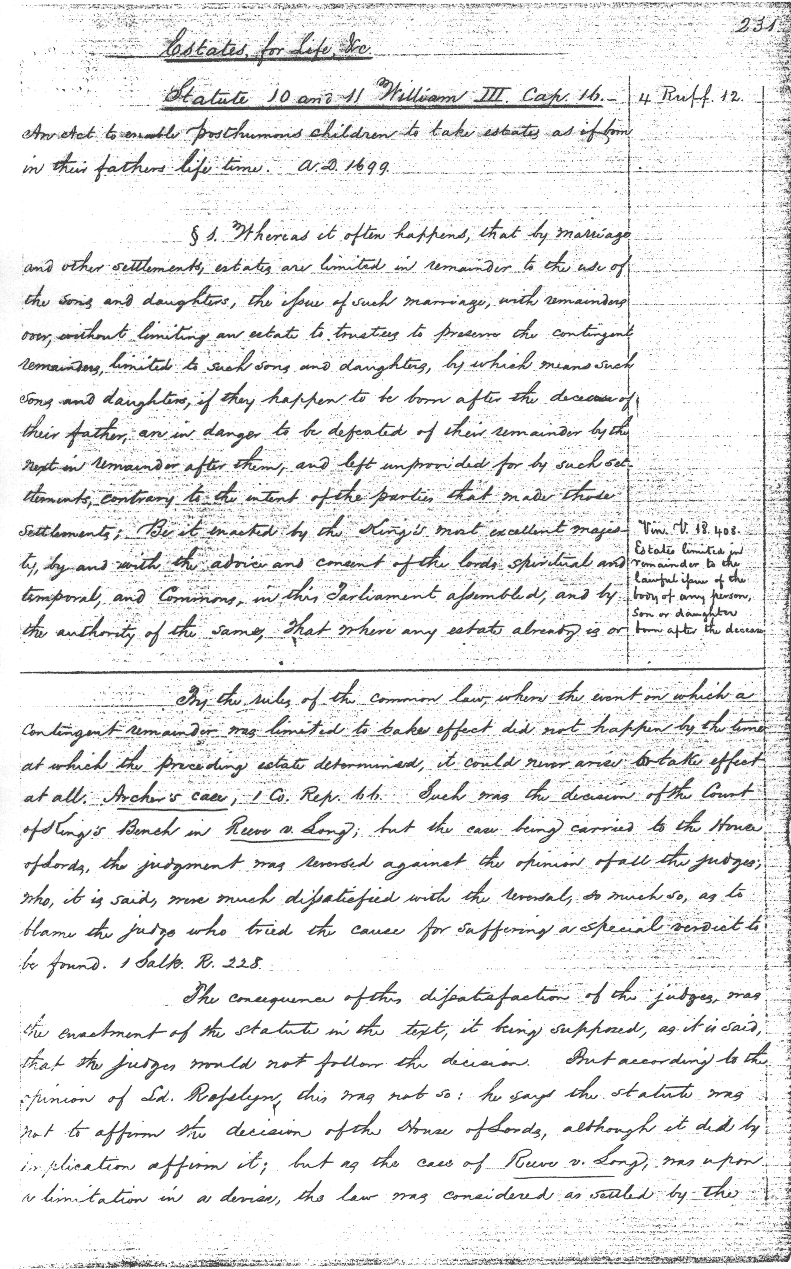 231
Estates, for Life, &c
Statute 10 and 11 William III. Cap. 16.-
4 Ruff. 12.
An Act to enable posthumous children to take estates as if born
in their fathers life time. A.D. 1699.
§ 1. Whereas it often happens, that by marriage
and other settlements, estates are limited in remainder to the use of
the sons and daughters, the issue of such marriage, with remainders
over, without limiting an estate to trustees to preserve the contingent
remainders, limited to such sons and daughters, by which means such
sons and daughters, if they happen to be born after the decease of
their father, are in danger to be defeated of their remainder by the
next in remainder after them, and left unprovided for by such set-
tlements, contrary to the intent of the parties that made those
settlements; Be it enacted by the King's most excellent majes-
ty, by and with the advice and consent of the lords spiritual and
temporal, and Commons, in this Parliament assembled, and by
the authority of the same, That where any estate already is or
Vin. V. 18. 408.
Estates limited in
remainder to the
lawful issue of the
body of any person,
son or daughter
born after the decease
By the rules of the common law, where the event on which a
contingent remainder was limited to take effect did not happen by the time
at which the preceding estate determined, it could never arise to take effect
at all. Archer's case, 1 Co. Rep. 66. Such was the decision of the Court
of King's Bench in Reeve v. Long; but the case being carried to the House
of Lords, the judgment was reversed against the opinion of all the judges;
who, it is said, were much dissatisfied with the reversal, so much so, as to
blame the judge who tried the cause for suffering a special verdict to
be found. 1 Salk. R. 228.
The consequence of this dissatisfaction of the judges, was
the enactment of the statute in the text, it being supposed, as it is said,
that the judges would not follow the decision. But according to the
opinion of Ld. Rosslyn, this was not so: he says the statute was
not to affirm the decision of the House of Lords, although it did by
implication affirm it; but as the case of Reeve v. Long, was upon
a limitation in a devise, the law was considered as settled by the